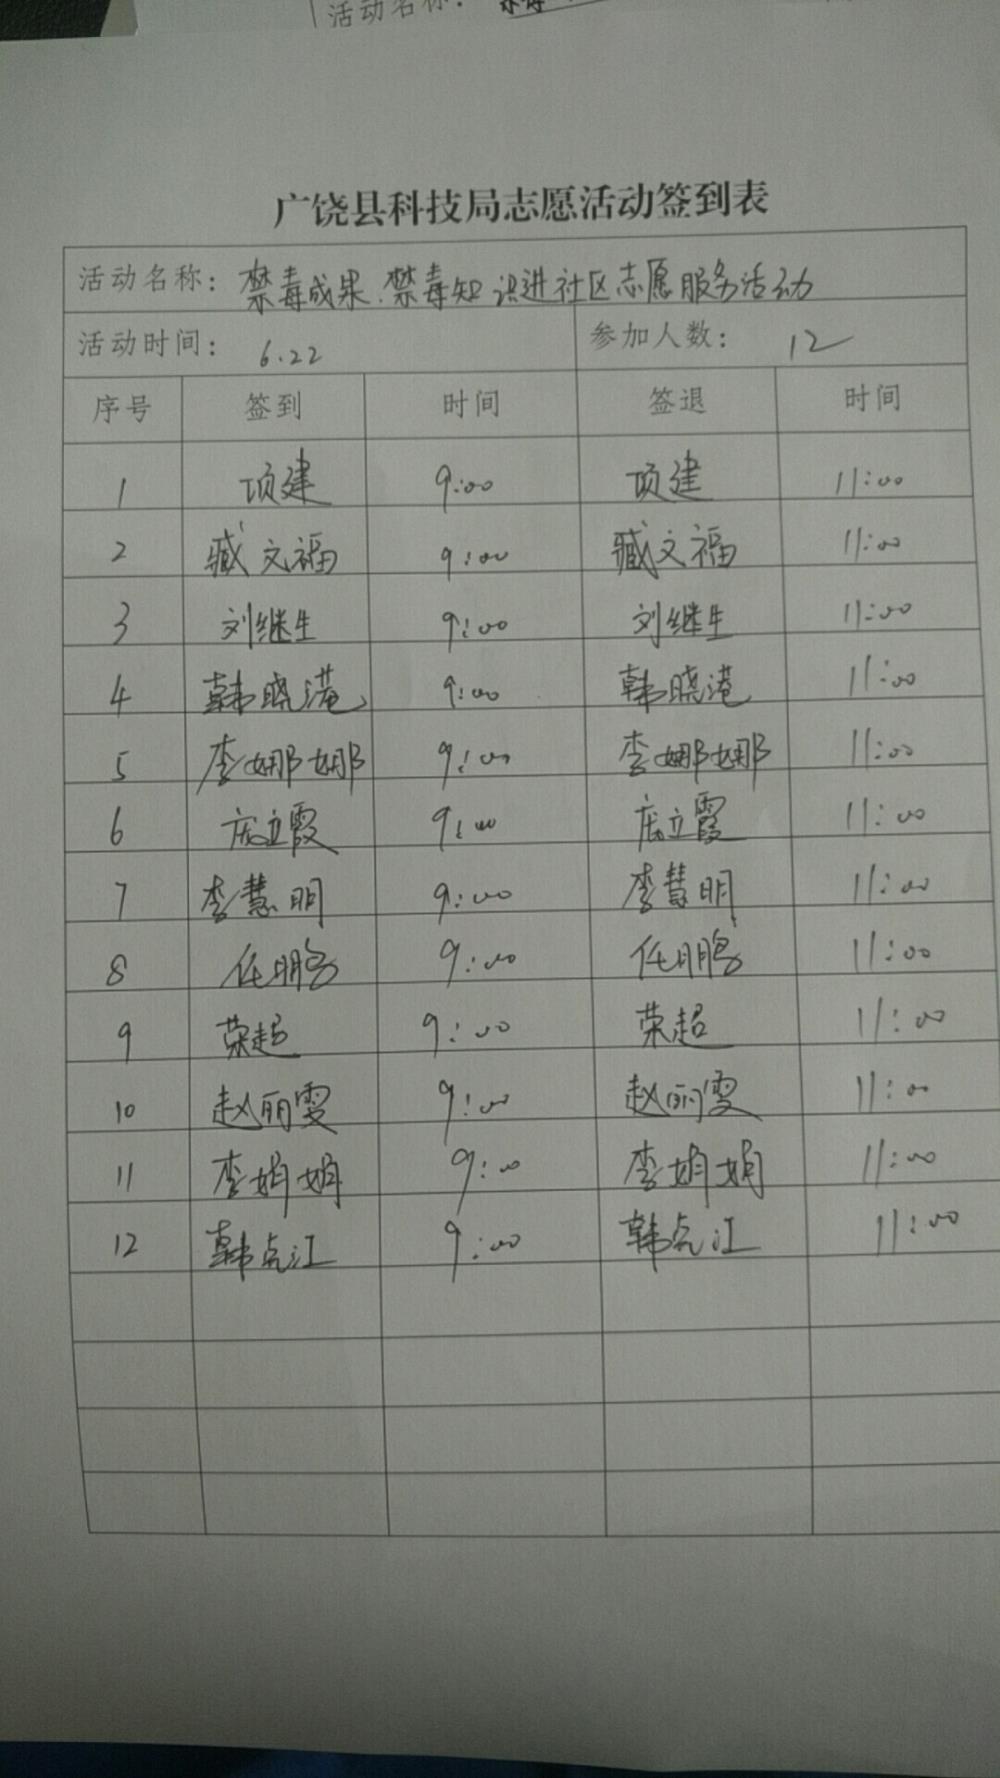 活动名称：
广饶县科技局志愿活动签到表
活动名称：禁毒成果、禁毒知识进社区志愿服务活动
活动时间：6.22 参加人数：12
序号 签到 时间 签退 时间
1 项建 9:00 项建 11:00
2 臧文福 9:00 臧文福 11:00
3 刘继生 9:00 刘继生 11:00
4 韩晓港 9:00 韩晓港 11:00
5 李娜娜 9:00 李娜娜 11:00
6 立霞 9:00 立霞 11:00
7 李慧明 9:00 李慧明 11:00
8 任鹏 9:00 任鹏 11:00
9 荣超 9:00 荣超 11:00
10 赵丽雯 9:00 赵丽雯 11:00
11 李娟娟 9:00 李娟娟 11:00
12 韩点江 9:00 韩点江 11:00